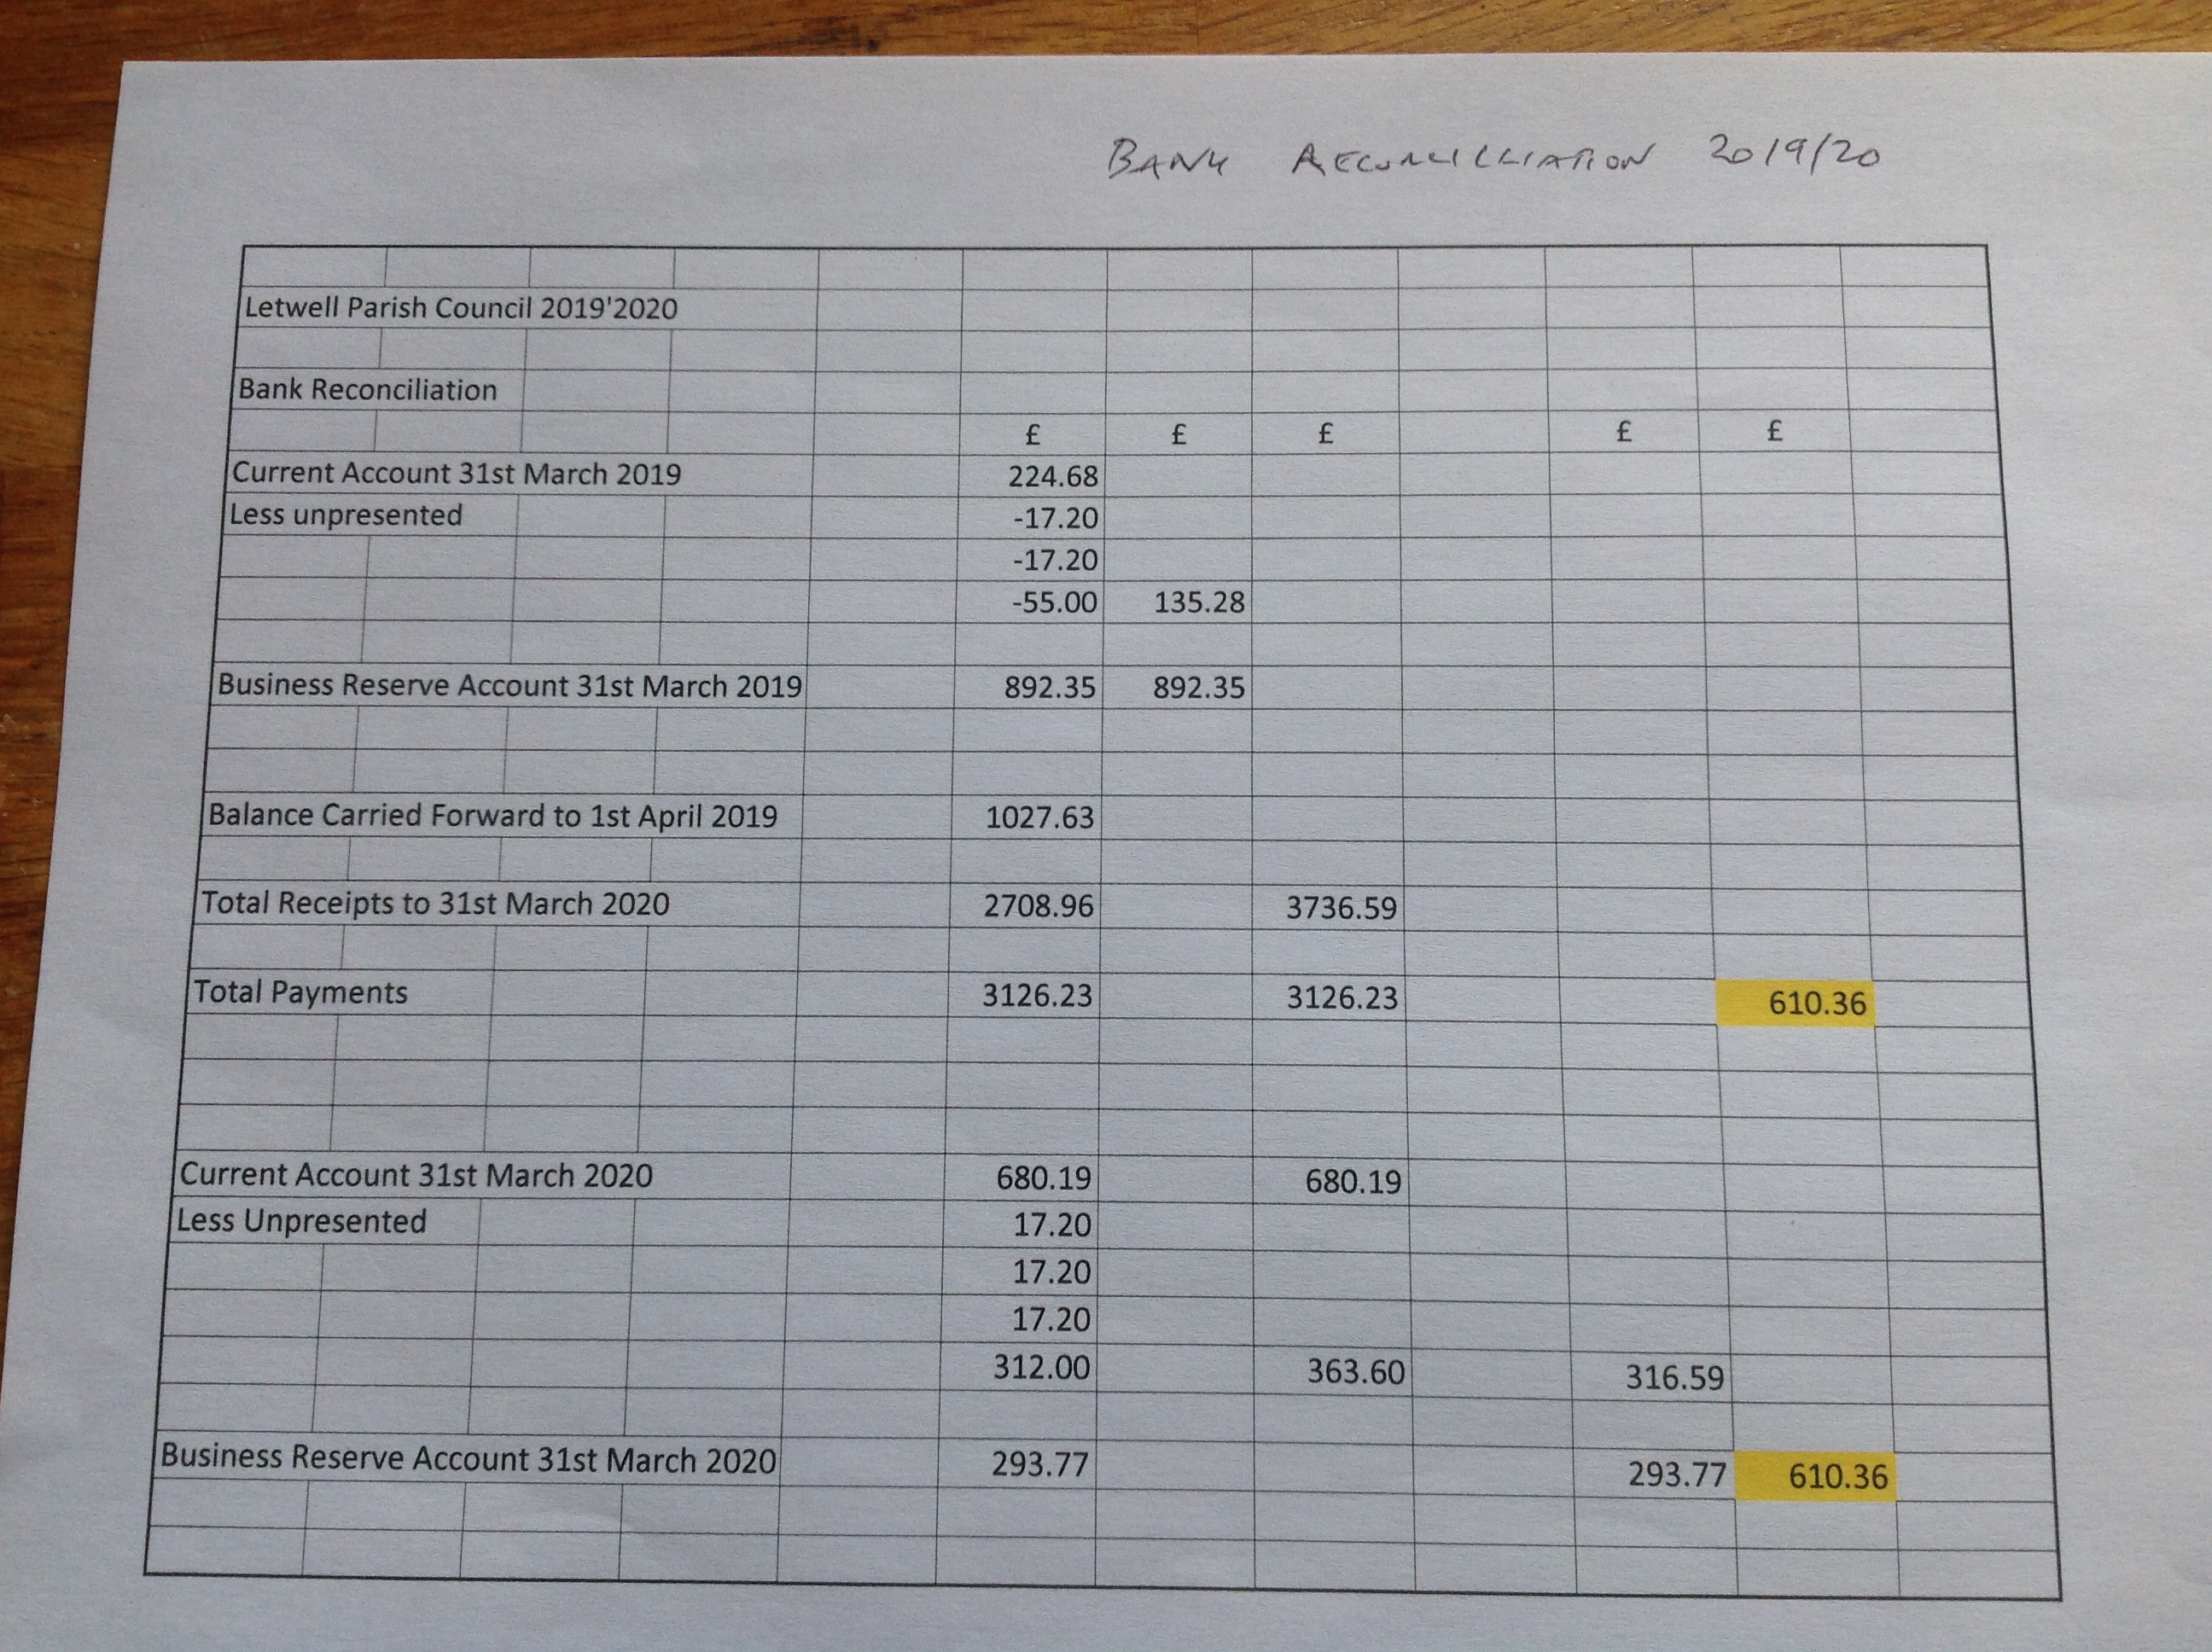 BANK RECONCILLIATION 2019/20
Letwell Parish Council 2019'2020
Bank Reconciliation
£ £ £ £ £
Current Account 31st March 2019 224.68
Less unpresented -17.20
-17.20
-55.00 135.28
Business Reserve Account 31st March 2019 892.35 892.35
Balance Carried Forward to 1st April 2019 1027.63
Total Receipts to 31st March 2020 2708.96 3736.59
Total Payments 3126.23 3126.23 610.36
Current Account 31st March 2020 680.19 680.19
Less Unpresented 17.20
17.20
17.20
312.00 363.60 316.59
Business Reserve Account 31st March 2020 293.77 293.77 610.36